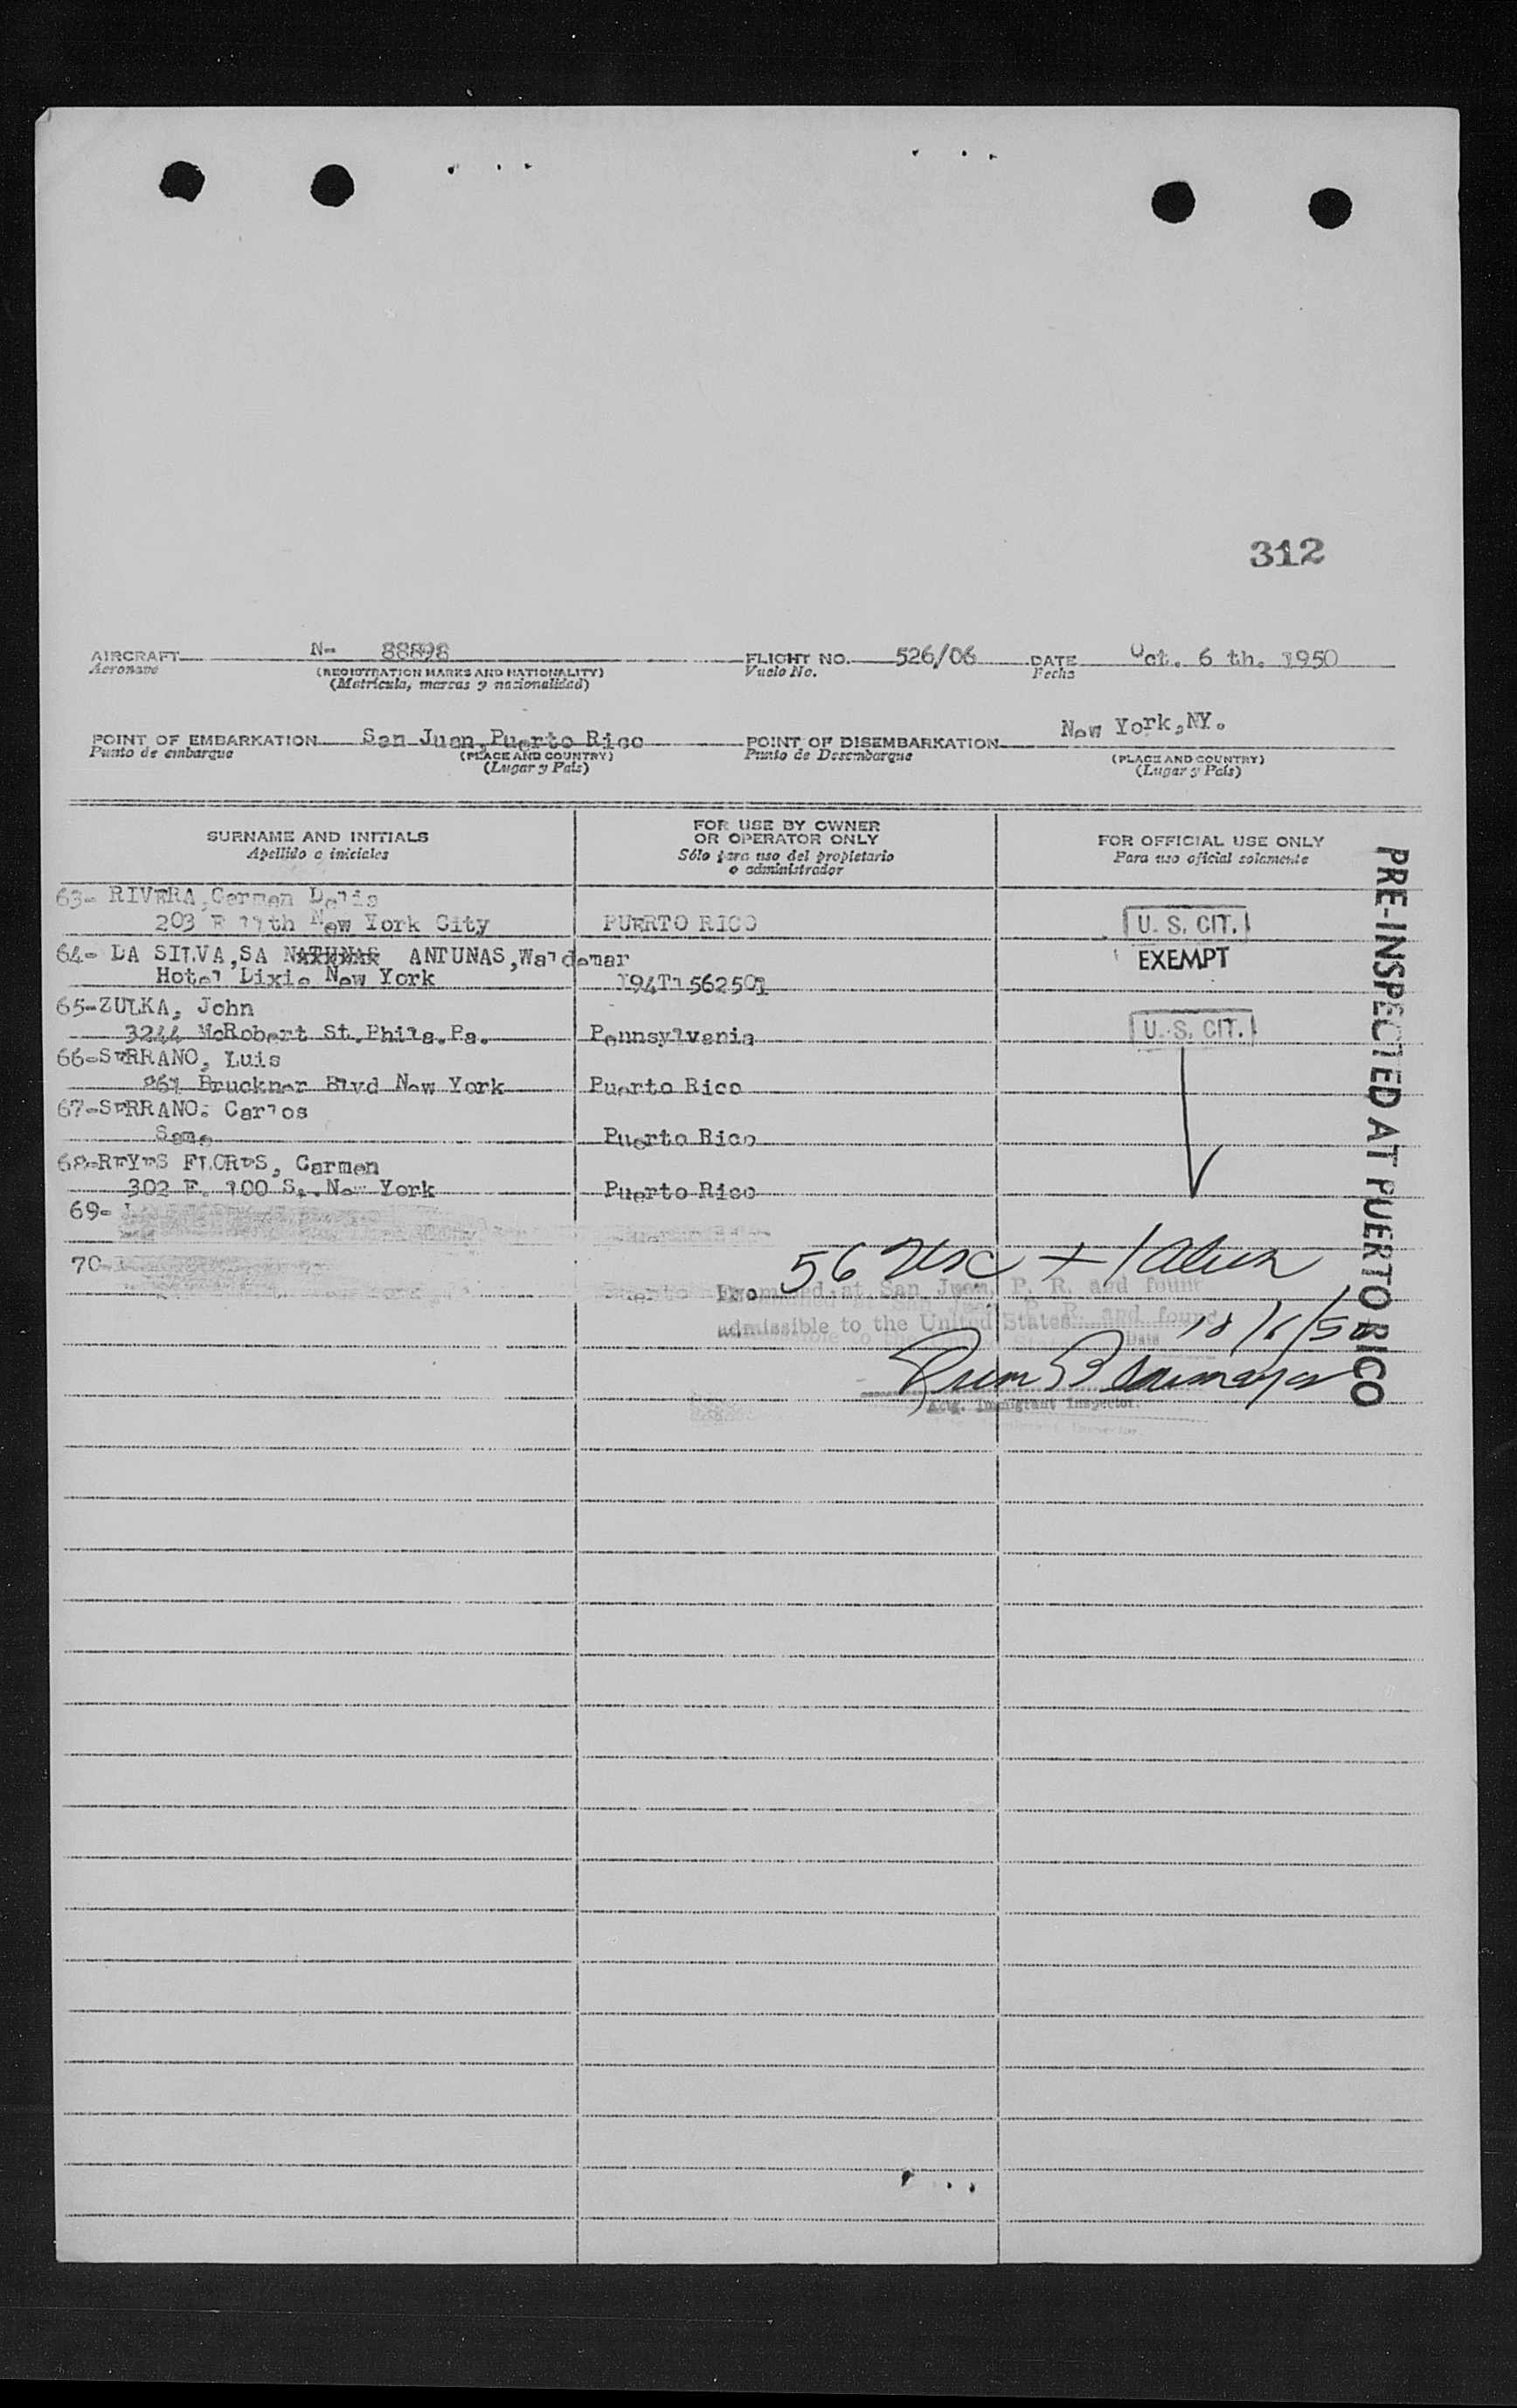 312
AIRCRAFT N- 88898 FLIGHT NO. 526/06 DATE Oct. 6 th. 1950
Aeronave (REGISTRATION MARKS AND NATIONALITY) Vuelo No. Fecha
(Matrícula, marcas y nacionalidad)
POINT OF EMBARKATION San Juan, Puerto Rico POINT OF DISEMBARKATION New York, NY.
Punto de embarque (PLACE AND COUNTRY) Punto de Desembarque (PLACE AND COUNTRY)
(Lugar y País) (Lugar y País)
SURNAME AND INITIALS FOR USE BY OWNER OR OPERATOR ONLY FOR OFFICIAL USE ONLY
Apellido o iniciales Sólo para uso del propietario o administrador Para uso oficial solamente
63- RIVERA, Carmen Delis
203 E 11th New York City PUERTO RICO U. S. CIT.
64- DA SILVA, SA ANTUNAS, Waldemar EXEMPT
Hotel Dixie New York I94T1562501
65-ZULKA, John
3244 McRobert St. Phila. Pa. Pennsylvania U. S. CIT.
66-SERRANO, Luis
867 Bruckner Blvd New York Puerto Rico
67-SERRANO, Carlos
Same Puerto Rico
68-REYES FLORES, Carmen
302 E. 100 S. New York Puerto Rico
69-
70-
56 USC + 1 alien
Examined at San Juan, P. R. and found
admissible to the United States 10/6/50
Date
Actg. Immigrant Inspector.
PRE-INSPECTED AT PUERTO RICO